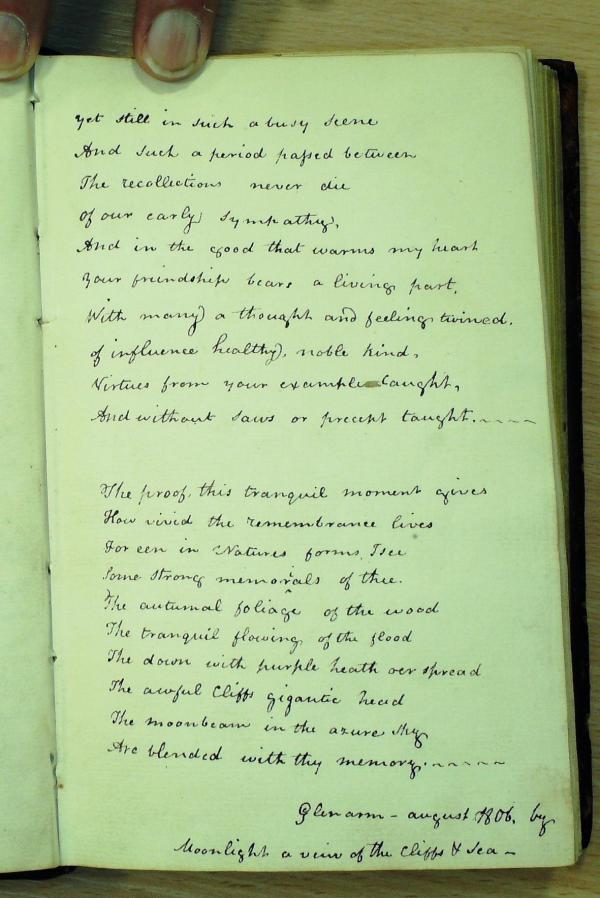 yet still in such a busy scene
And such a period passed between
The recollections never die
of our early sympathy,
And in the good that warms my heart
your friendship bears a living part,
With many a thought and feeling twined,
of influence healthy, noble kind,
Virtues from your example caught,
And without saws or precept taught.
The proof, this tranquil moment gives
How vivid the remembrance lives
For een in Natures forms I see
Some strong memorials of thee.
The autumal foliage of the wood
The tranquil flowing of the flood
The down with purple heath oer spread
The awful Cliffs gigantic head
The moonbeam in the azure sky
Are blended with thy memory.
Glenarm - august 1806, by
Moonlight a view of the Cliffs & Sea -